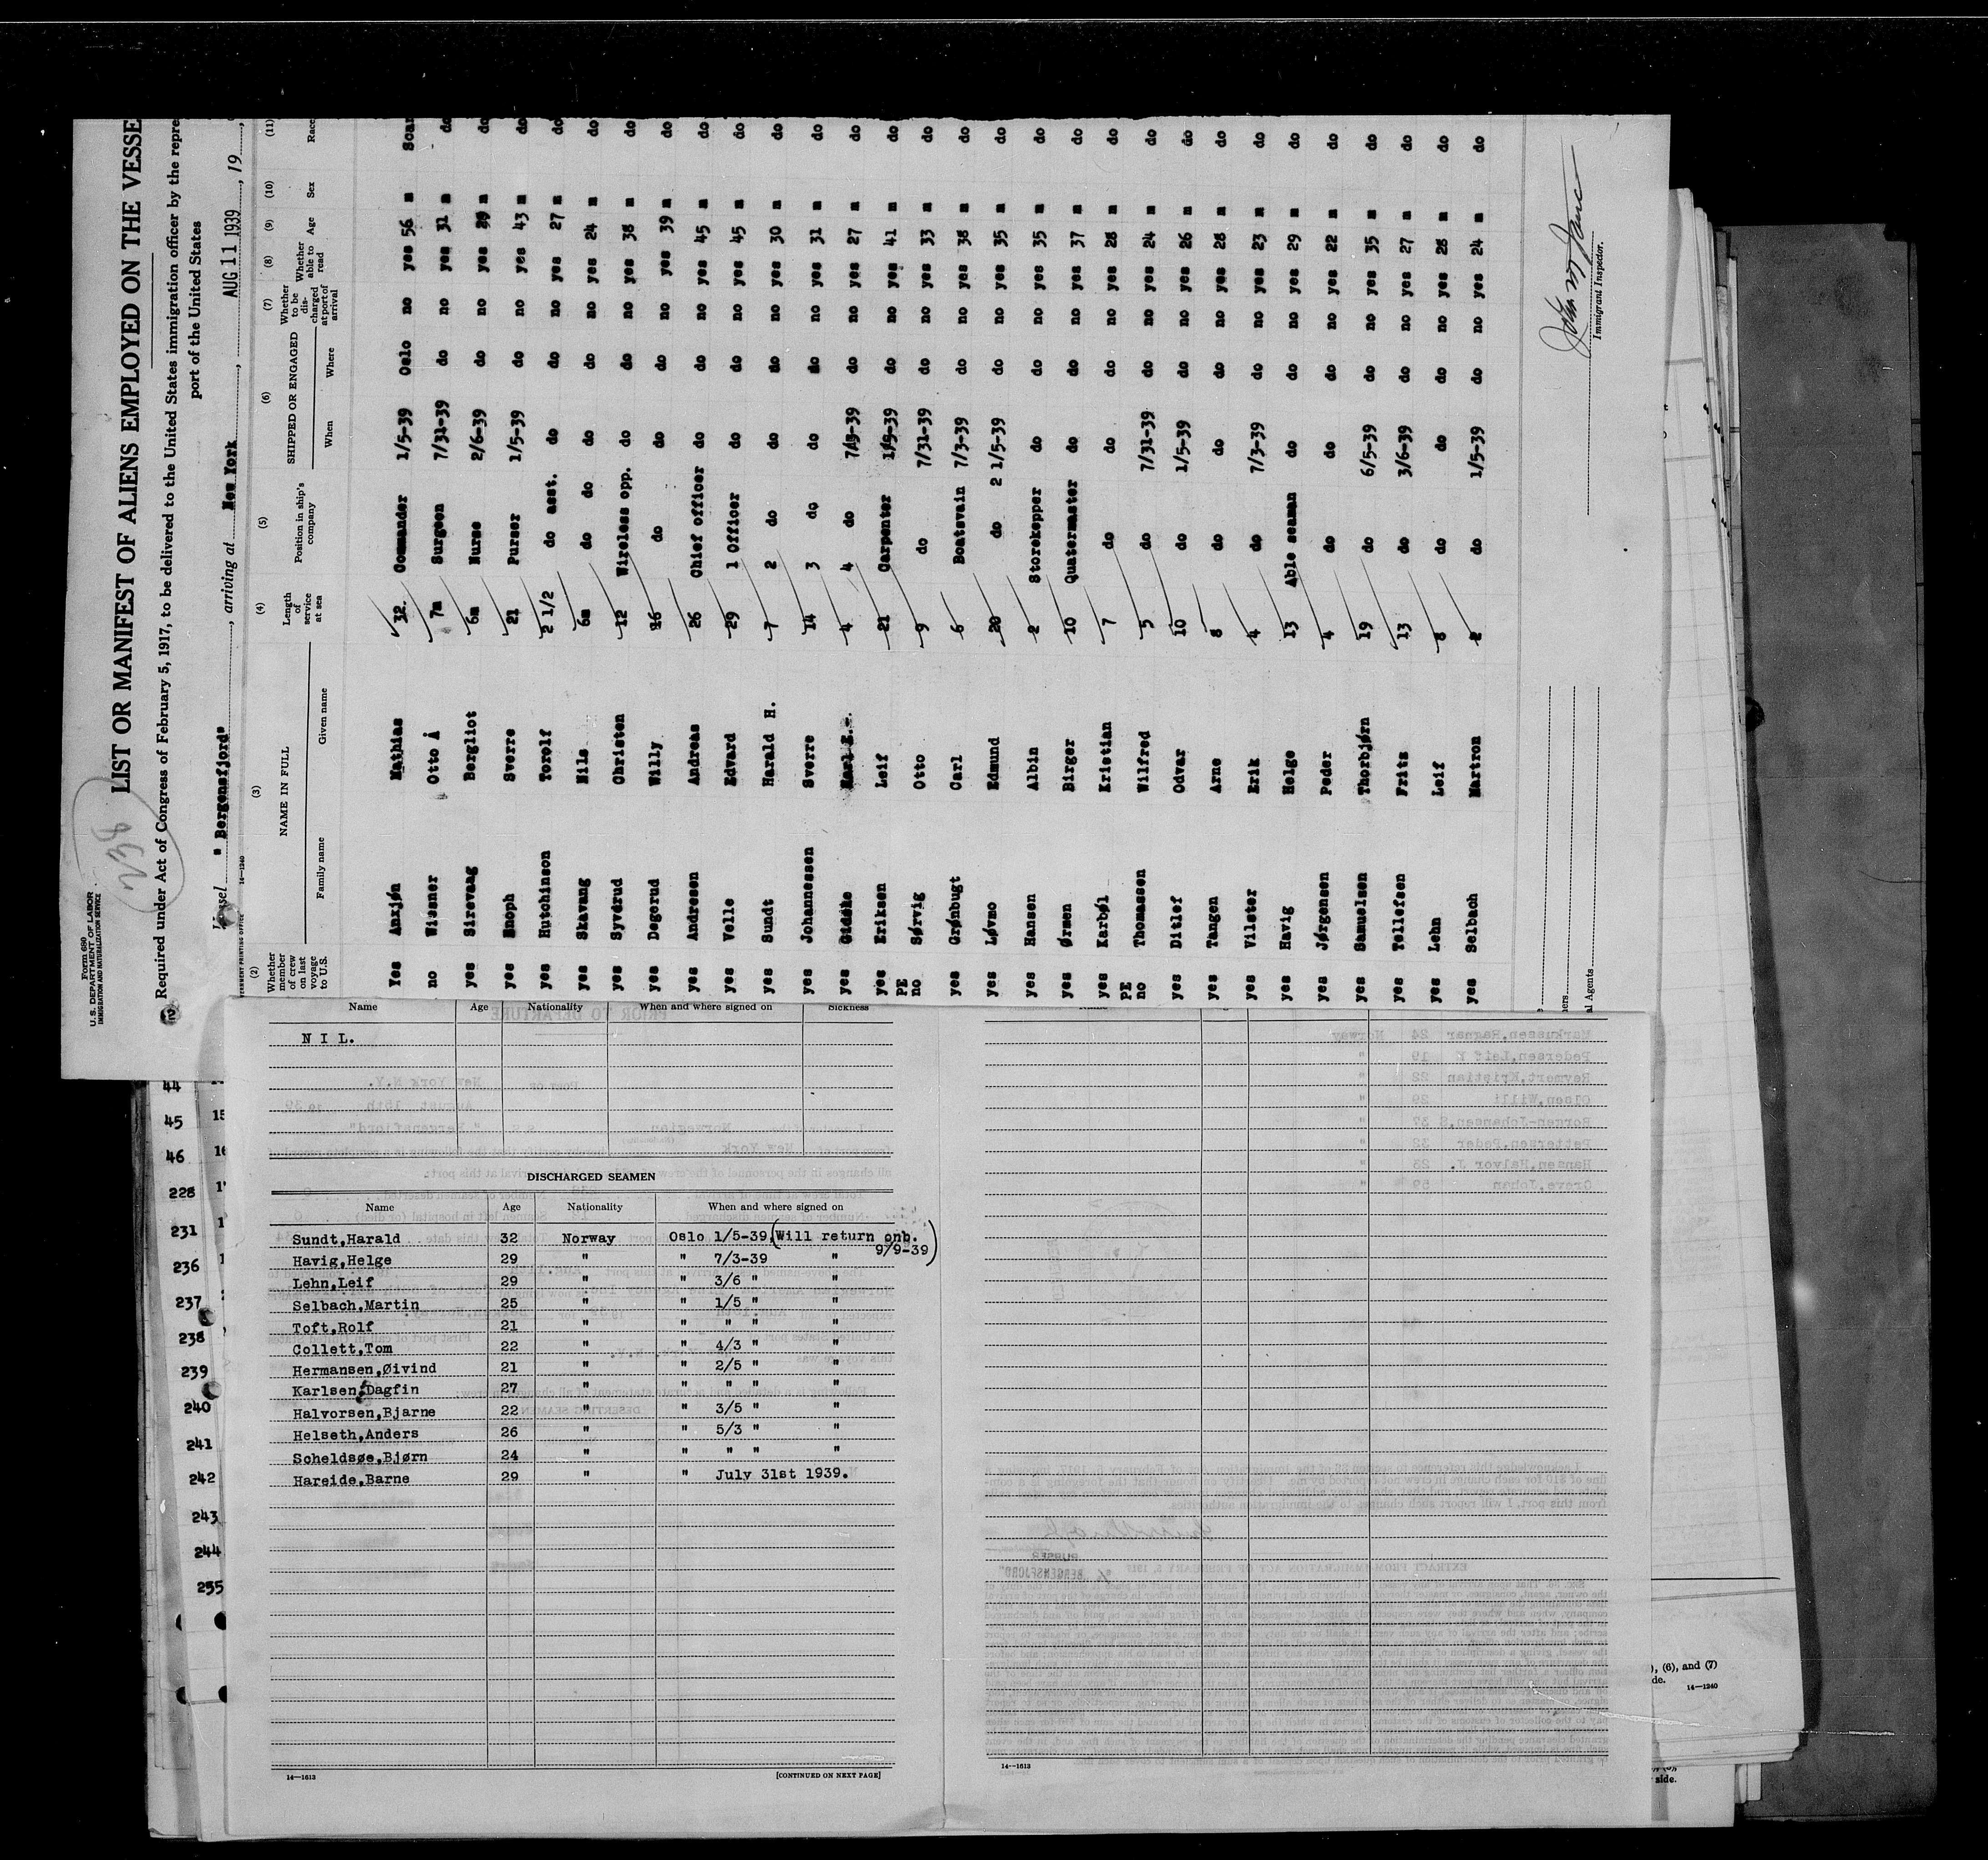 Form 680
U.S. DEPARTMENT OF LABOR
IMMIGRATION AND NATURALIZATION SERVICE
238
LIST OR MANIFEST OF ALIENS EMPLOYED ON THE VESSE
Required under Act of Congress of February 5, 1917, to be delivered to the United States immigration officer by the repre
port of the United States
Vessel " Bergensfjord" , arriving at New York , AUG 11 1939 , 19
14—1240
(2) (3) (4) (5) (6) (7) (8) (9) (10) (11)
Whether member of crew on last voyage to U.S. NAME IN FULL Family name Given name Length of service at sea Position in ship's company SHIPPED OR ENGAGED When Where Whether to be discharged at port of arrival Whether able to read Age Sex Race
Yes Anxjøn Mathias 32 Commander 1/5-39 Oslo no yes 56 m Scan
no Wiesner Otto Å 7m Surgeon 7/31-39 do no yes 31 m do
yes Sirevaag Bergliot 6m Nurse 2/6-39 do no yes 29 m do
yes Enoph Sverre 21 Purser 1/5-39 do no yes 43 m do
yes Hutchinson Torolf 2 1/2 do asst. do do no yes 27 m do
yes Skavang Nils 6m do do do do no yes 24 m do
yes Syverud Christen 12 Wireless opp. do do no yes 38 m do
yes Degerud Willy 16 do do do no yes 39 m do
yes Andresen Andreas 26 Chief officer do do no yes 45 m do
yes Velle Edvard 29 1 Officer do do no yes 45 m do
yes Sundt Harald H. 7 2 do do do no yes 30 m do
yes Johannessen Sverre 14 3 do do do no yes 31 m do
yes 4 4 do 7/3-39 do no yes 27 m do
yes Eriksen Leif 21 Carpenter 1/5-39 do no yes 41 m do
PE no Sørvig Otto 9 do 7/31-39 do no yes 33 m do
yes Grønbugt Carl 6 Boatsvain 7/3-39 do no yes 38 m do
yes Løvmo Edmund 20 do 2 1/5-39 do no yes 35 m do
yes Hansen Albin 2 Storekepper do do no yes 35 m do
yes Ørmen Birger 10 Quatermaster do do no yes 37 m do
yes Karbøl Kristian 7 do do do no yes 28 m do
PE no Thomassen Wilfred 5 do 7/31-39 do no yes 24 m do
yes Ditlef Odvar 10 do 1/5-39 do no yes 26 m do
yes Tangen Arne 8 do do do no yes 28 m do
yes Vilster Erik 4 do 7/3-39 do no yes 23 m do
yes Havig Helge 13 Able seaman do do no yes 29 m do
yes Jørgensen Peder 4 do do do no yes 22 m do
yes Samuelsen Thorbjørn 19 do 6/5-39 do no yes 35 m do
yes Tellefsen Frits 13 do 3/6-39 do no yes 27 m do
yes Lehn Leif 8 do do do no yes 28 m do
yes Selbach Martron 2 do 1/5-39 do no yes 24 m do
Immigrant Inspector.
al Agents
Name Age Nationality When and where signed on Sickness
N I L.
DISCHARGED SEAMEN
Name Age Nationality When and where signed on
Sundt,Harald 32 Norway Oslo 1/5-39.(Will return onb. 9/9-39)
Havig,Helge 29 " " 7/3-39 "
Lehn,Leif 29 " " 3/6 " "
Selbach,Martin 25 " " 1/5 " "
Toft,Rolf 21 " " " " "
Collett,Tom 22 " " 4/3 " "
Hermansen,Øivind 21 " " 2/5 " "
Karlsen,Dagfin 27 " " " " "
Halvorsen,Bjarne 22 " " 3/5 " "
Helseth,Anders 26 " " 5/3 " "
Scheldsøe,Bjørn 24 " " " " "
Hareide,Barne 29 " " July 31st 1939.
14—1613
[CONTINUED ON NEXT PAGE]
14—1613
44
45
46
228
231
236
237
238
239
240
241
242
243
244
255
), (6), and (7)
de.
14—1240
side.